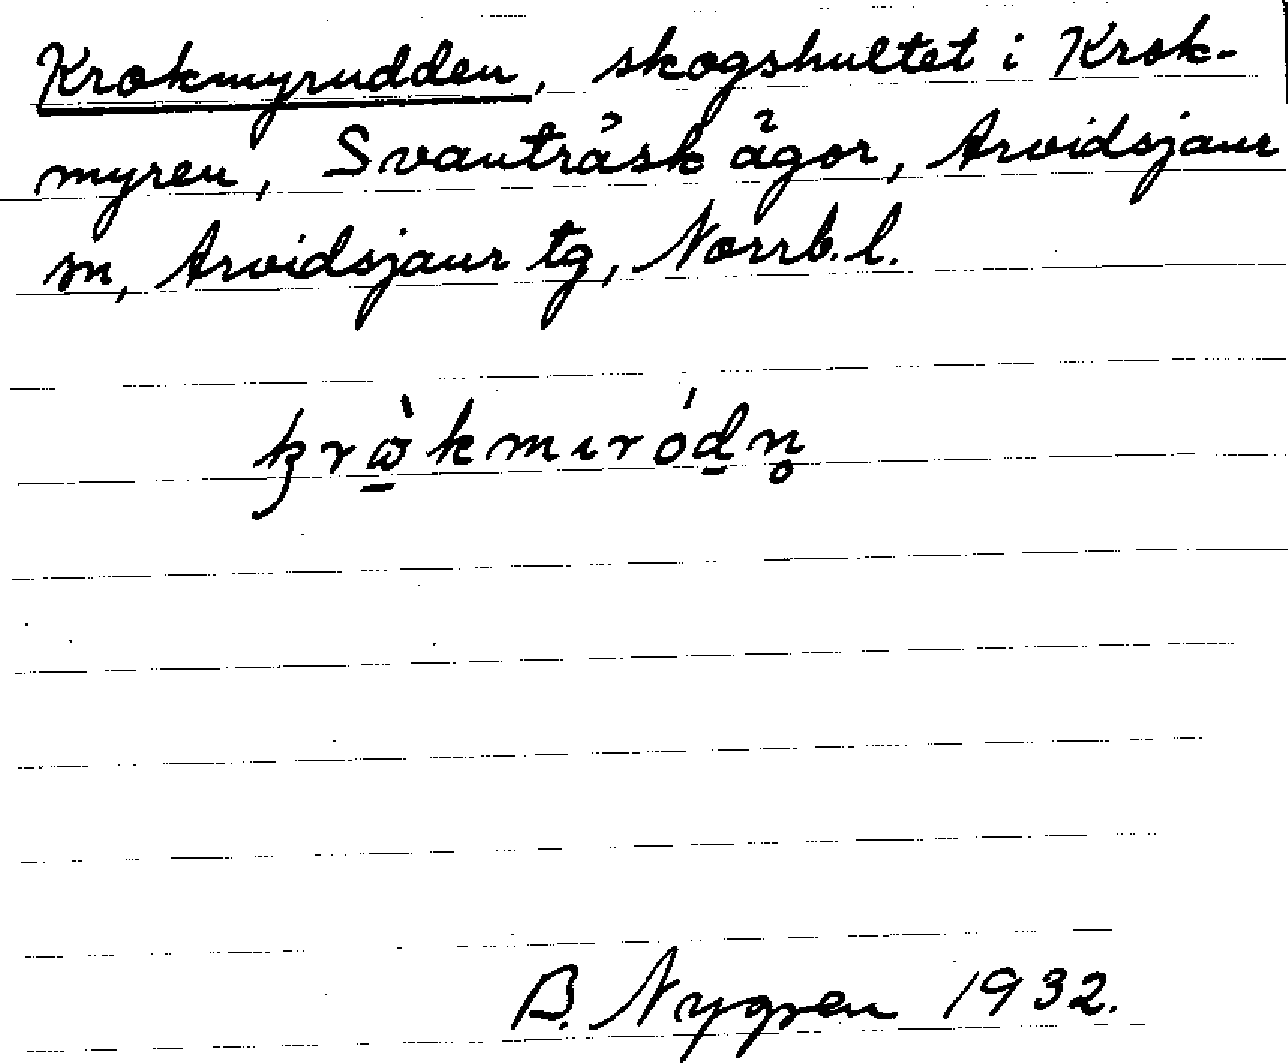 Krokmyrudden, skogshultet i Krok-
myren, Svanträsk ägor, Arvidsjaur
sn, Arvidsjaur tg, Norrb. l.
krὼkmıródn̥
B. Nygren 1932.